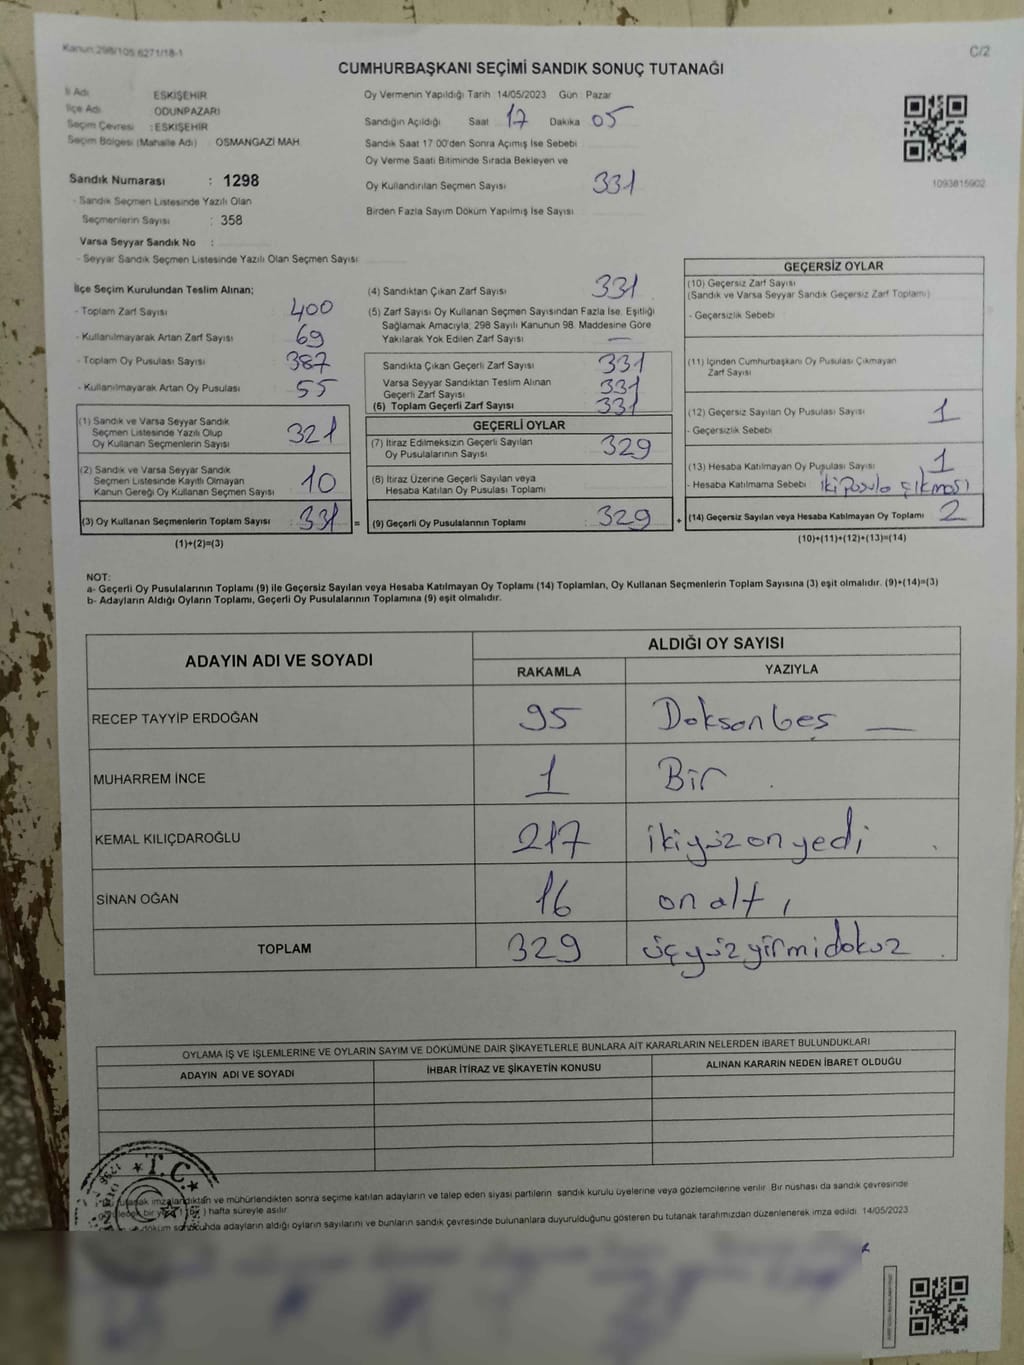 Kanun:298/105 6271/18-1
C/2
CUMHURBAŞKANI SEÇİMİ SANDIK SONUÇ TUTANAĞI
İl Adı ESKİŞEHİR
İlçe Adı ODUNPAZARI
Seçim Çevresi : ESKİŞEHİR
Seçim Bölgesi (Mahalle Adı) OSMANGAZİ MAH.
Sandık Numarası : 1298
- Sandık Seçmen Listesinde Yazılı Olan
Seçmenlerin Sayısı : 358
Varsa Seyyar Sandık No :
- Seyyar Sandık Seçmen Listesinde Yazılı Olan Seçmen Sayısı:
Oy Vermenin Yapıldığı Tarih 14/05/2023 Gün : Pazar
Sandığın Açıldığı Saat 17 Dakika 05
Sandık Saat 17 00'den Sonra Açımış İse Sebebi
Oy Verme Saati Bitiminde Sırada Bekleyen ve
Oy Kullandırılan Seçmen Sayısı 331
Birden Fazla Sayım Döküm Yapılmış İse Sayısı
1093815902
İlçe Seçim Kurulundan Teslim Alınan;
- Toplam Zarf Sayısı 400
- Kullanılmayarak Artan Zarf Sayısı 69
- Toplam Oy Pusulası Sayısı 387
- Kullanılmayarak Artan Oy Pusulası 55
(1) Sandık ve Varsa Seyyar Sandık
Seçmen Listesinde Yazılı Olup
Oy Kullanan Seçmenlerin Sayısı 321
(2) Sandık ve Varsa Seyyar Sandık
Seçmen Listesinde Kayıtlı Olmayan
Kanun Gereği Oy Kullanan Seçmen Sayısı 10
(3) Oy Kullanan Seçmenlerin Toplam Sayısı : 331 =
(1)+(2)=(3)
(4) Sandıktan Çıkan Zarf Sayısı 331
(5) Zarf Sayısı Oy Kullanan Seçmen Sayısından Fazla İse, Eşitliği
Sağlamak Amacıyla; 298 Sayılı Kanunun 98. Maddesine Göre
Yakılarak Yok Edilen Zarf Sayısı —
Sandıkta Çıkan Geçerli Zarf Sayısı 331
Varsa Seyyar Sandıktan Teslim Alınan
Geçerli Zarf Sayısı 331
(6) Toplam Geçerli Zarf Sayısı 331
GEÇERLİ OYLAR
(7) İtiraz Edilmeksizin Geçerli Sayılan
Oy Pusulalarının Sayısı 329
(8) İtiraz Üzerine Geçerli Sayılan veya
Hesaba Katılan Oy Pusulası Toplamı
(9) Geçerli Oy Pusulalarının Toplamı 329 +
GEÇERSİZ OYLAR
(10) Geçersiz Zarf Sayısı
(Sandık ve Varsa Seyyar Sandık Geçersiz Zarf Toplamı)
- Geçersizlik Sebebi
(11) İçinden Cumhurbaşkanı Oy Pusulası Çıkmayan
Zarf Sayısı
(12) Geçersiz Sayılan Oy Pusulası Sayısı 1
- Geçersizlik Sebebi
(13) Hesaba Katılmayan Oy Pusulası Sayısı 1
- Hesaba Katılmama Sebebi iki pusula çıkması
(14) Geçersiz Sayılan veya Hesaba Katılmayan Oy Toplamı 2
(10)+(11)+(12)+(13)=(14)
NOT:
a- Geçerli Oy Pusulalarının Toplamı (9) ile Geçersiz Sayılan veya Hesaba Katılmayan Oy Toplamı (14) Toplamları, Oy Kullanan Seçmenlerin Toplam Sayısına (3) eşit olmalıdır. (9)+(14)=(3)
b- Adayların Aldığı Oyların Toplamı, Geçerli Oy Pusulalarının Toplamına (9) eşit olmalıdır.
ADAYIN ADI VE SOYADI ALDIĞI OY SAYISI
RAKAMLA YAZIYLA
RECEP TAYYİP ERDOĞAN 95 Doksanbeş —
MUHARREM İNCE 1 Bir
KEMAL KILIÇDAROĞLU 217 ikiyüzonyedi
SİNAN OĞAN 16 on altı
TOPLAM 329 üçyüzyirmidokuz
OYLAMA İŞ VE İŞLEMLERİNE VE OYLARIN SAYIM VE DÖKÜMÜNE DAİR ŞİKAYETLERLE BUNLARA AİT KARARLARIN NELERDEN İBARET BULUNDUKLARI
ADAYIN ADI VE SOYADI İHBAR İTİRAZ VE ŞİKAYETİN KONUSU ALINAN KARARIN NEDEN İBARET OLDUĞU
T.C.
imzalandıktan ve mühürlendikten sonra seçime katılan adayların ve talep eden siyasi partilerin sandık kurulu üyelerine veya gözlemcilerine verilir. Bir nüshası da sandık çevresinde
bir hafta süreyle asılır.
adayların aldığı oyların sayılarını ve bunların sandık çevresinde bulunanlara duyurulduğunu gösteren bu tutanak tarafımızdan düzenlenerek imza edildi. 14/05/2023